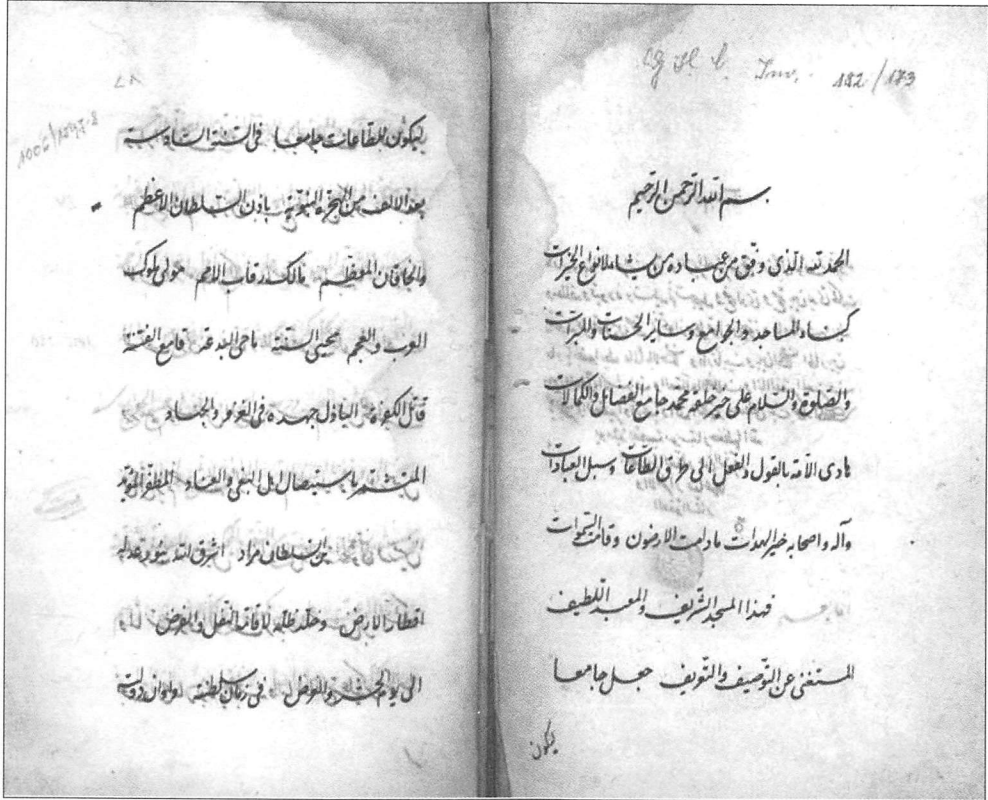 بسم الله الرحمن الرحيم
الحمد لله الذى وفق من عباده من يشاء لانواع الخيرات
كبناء المساجد والجوامع وساير الحسنات والمبرات
والصلوة والسلام على خير خلقه محمد جامع الفضائل والكمالات
هادى الامة بالقول والفعل الى طرق الطاعات وسبل العبادات
وآله واصحابه خير الهداة ما دامت الارضون وقامت السموات
فهذا المسجد الشريف والمعبد اللطيف
المستغنى عن التوصيف والتعريف جعل جامعا
ليكون
ليكون للطاعات جامعا فى السنة السادسة
بعد الالف من الهجرة النبوية باذن السلطان الاعظم
والخاقان المعظم مالك رقاب الامم مولى ملوك
العرب والعجم محيى السنة ماحى البدعة قامع الفتنة
قاتل الكفرة الباذل جهده فى الغزو والجهاد
باستيصال اهل البغى والعناد المظفر
بن السلطان مراد اشرق الله بنور عدله
اقطار الارض وخلد ظله لاقامة النفل والفرض
الى يوم الحشر والعرض فى زمان سلطنته واوان دولته
182/173